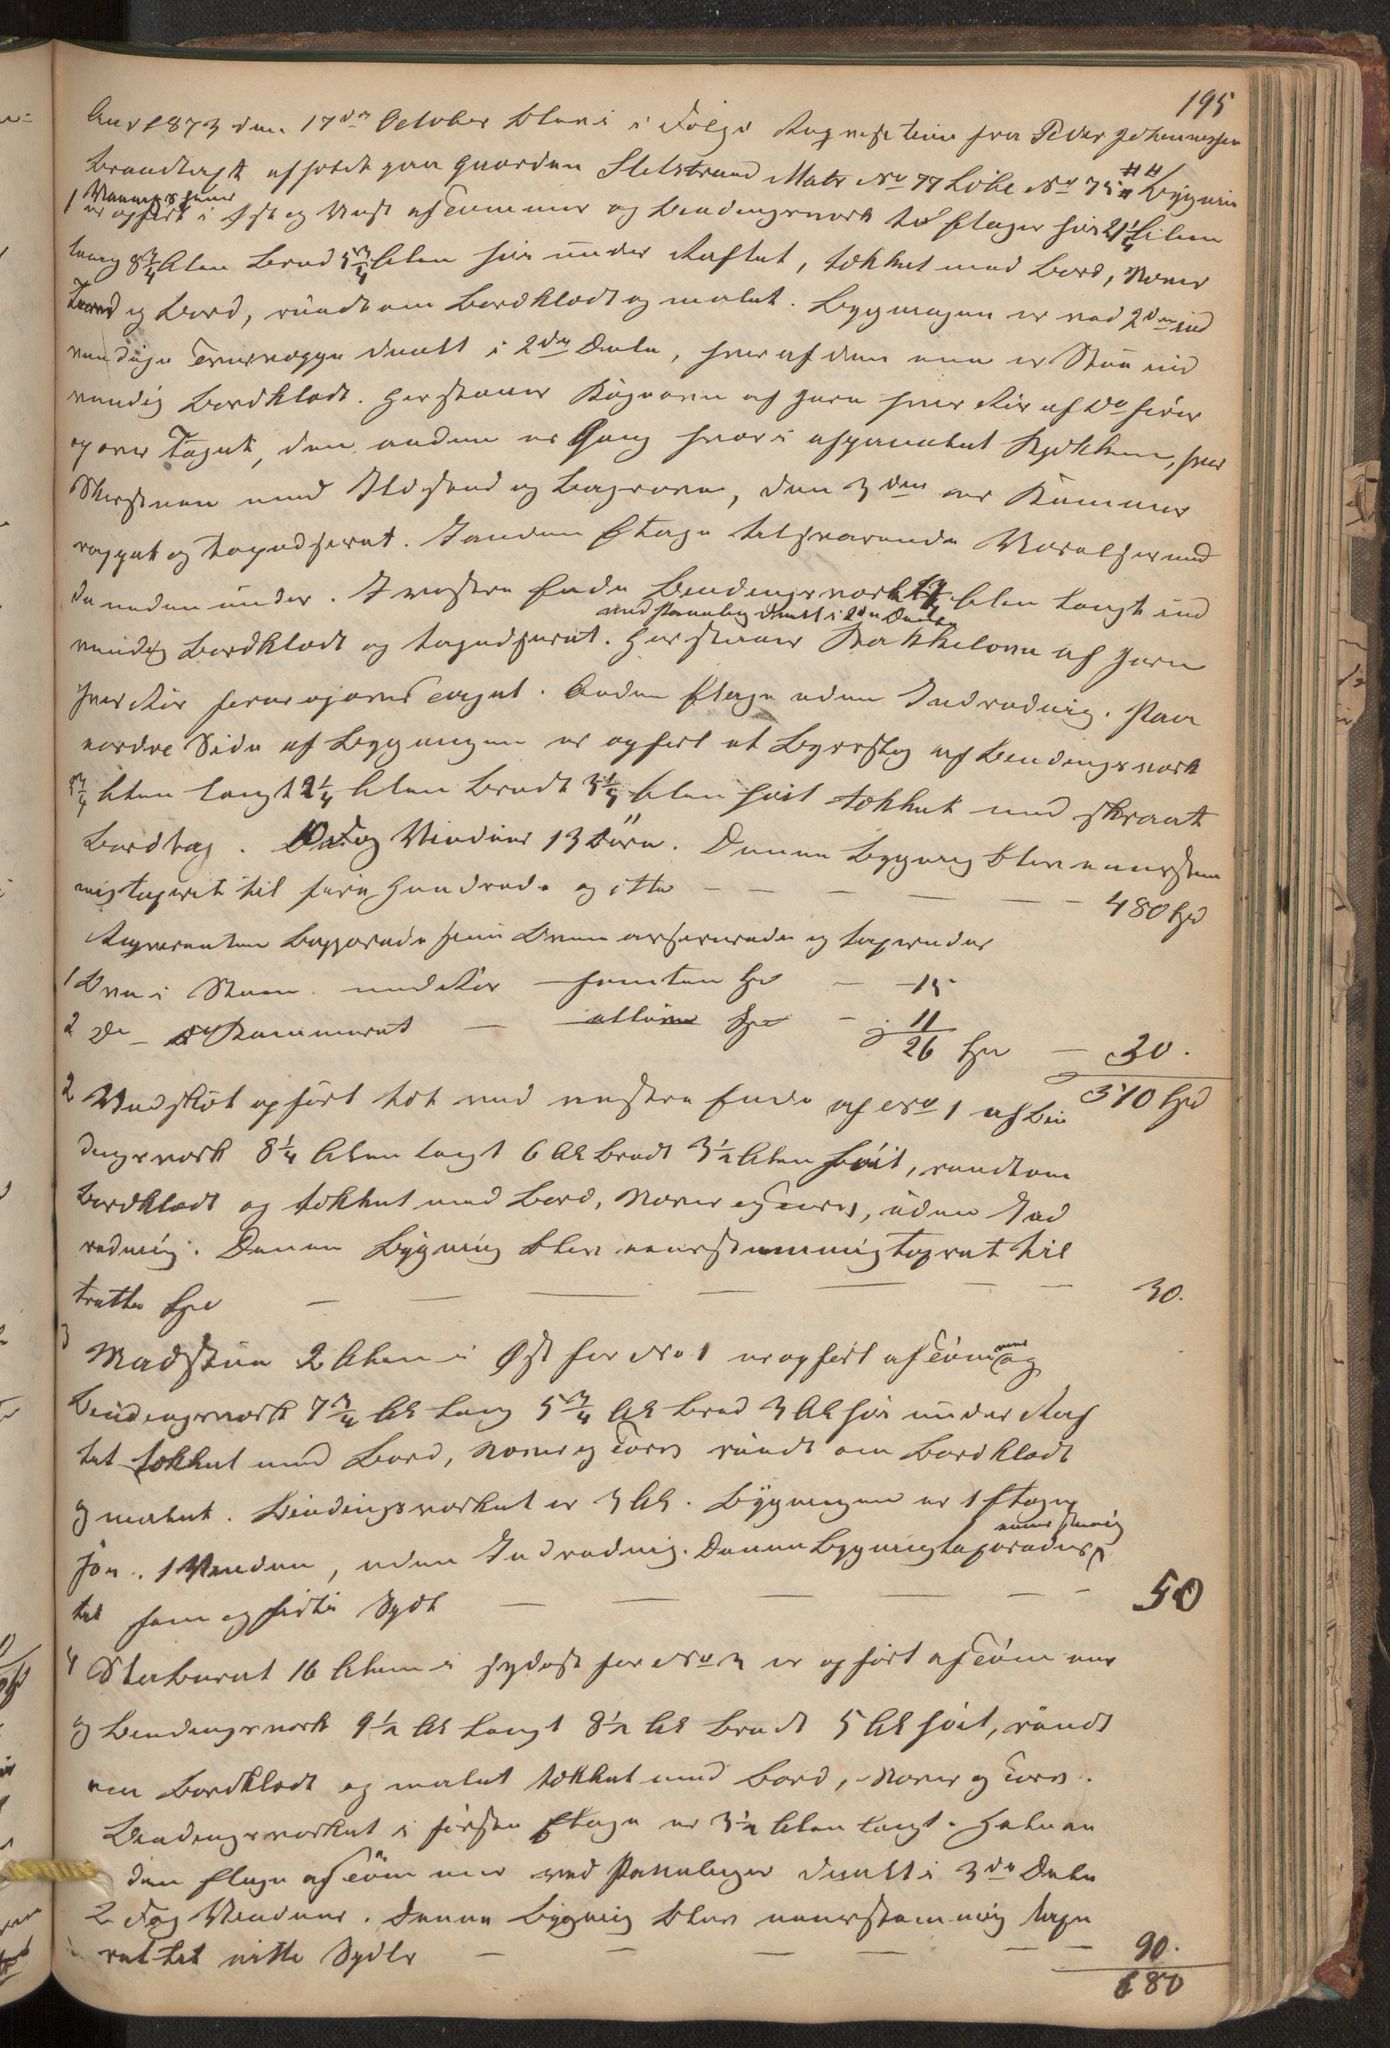 195
Aar 1873 den 17de October blev i Følge Reqvisition fra Peder Johannessen
Brandtaxt afholdt paa Gaarden Sletstrand Matr No 77 Løbe No 75 ## # Bygnin
1 Vaaningshuus
er opført i Øst og Vest af Tømmer og Bindingsværk to Etager høi 21 1/4 Alen
lang 8 3/4 Alen bred 5 3/4 Alen høi under Raftet, tækket med Bord, Næver
Torv og Bord, rundt om Bordklædt og malet. Bygningen er ved 2de ind
vendige Tverrvægge deelt i 2de Dele, hver af dem ene er Stue ind
vendig Bordklædt. Her staaer Kogeovn af Jern hver Rør af Do fører
op over Taget, den anden er Gang hvori afpanelet Kjøkken, hver
Skorsteen med Ildsted og Bagerovn, den 3die er Kammer
rappet og tapedseret. I anden Etage tilsvarende Værelser med
de neden under. I vestre Ende Bindingsværk Alen langt ind
ved Paneling deelt i 2de Dele
vendig Bordklædt og tapedseret. Her staaer Kakkelovn af Jern
hver Rør fører op over Taget. Anden Etage uden Indredning. Paa
nordre Side af Bygningen er opført et Byrslag af Bindingsværk
3 3/4 Alen langt 2 1/4 Alen bredt 3 1/4 Alen høit tækket med skraat
Bordtag. Fag Vinduer 13 Døre. Denne Bygning blev eenstem
mig taxeret til fire Hundrede og otte — — — 480 Spd
Reqvirenten begjærede sine Ovne asserverede og taxerede
1 Ovn i Stuen med Rør — femten Spd — 15
2 Do — Kammeret — elleve Spd — 11
26 Spd — 30.
370 Spd
2 Vedskot opført tæt ved vestre Ende af No 1 af Bin
dingsværk 8 1/4 Alen langt 6 Al bredt 3 1/2 Alen høit, rundt om
Bordklædt og tækket med Bord, Næver og Torv, uden Ind
redning. Denne Bygning blev eenstemmig taxeret til
trette Spd — — — — — 30.
3
Madstue 2 Alen i Øst for No 1 er opført af Tømmer og
Bindingsværk 7 3/4 Al lang 5 3/4 Al bred 3 Al høi under Raf
tet tækket med Bord, Næver og Torv rundt om Bordklædt
og malet. Bindingsværket er 3 Al. Bygningen er 1 Etage
eenstemmig
høi. 1 Vindue, uden Indredning. Denne Bygning taxeredes
til fem og førti Spdl — — — — — 50
4 Stabburet 16 Alen i sydost for No 3 er opført af Tømmer
og Bindingsværk 9 1/2 Al langt 8 1/2 Al bredt 5 Al høit, rundt
om Bordklædt og malet tækket med Bord, Næver og Torv.
Bindingsværket i første Etage er 3 1/2 Alen langt. Hele an
den Etage af Tømmer ved Panelinger deelt i 3de Dele
2 Fag Vinduer. Denne Bygning blev eenstemmig taxe
ret til nitti Spdlr — — — — — 90.
680